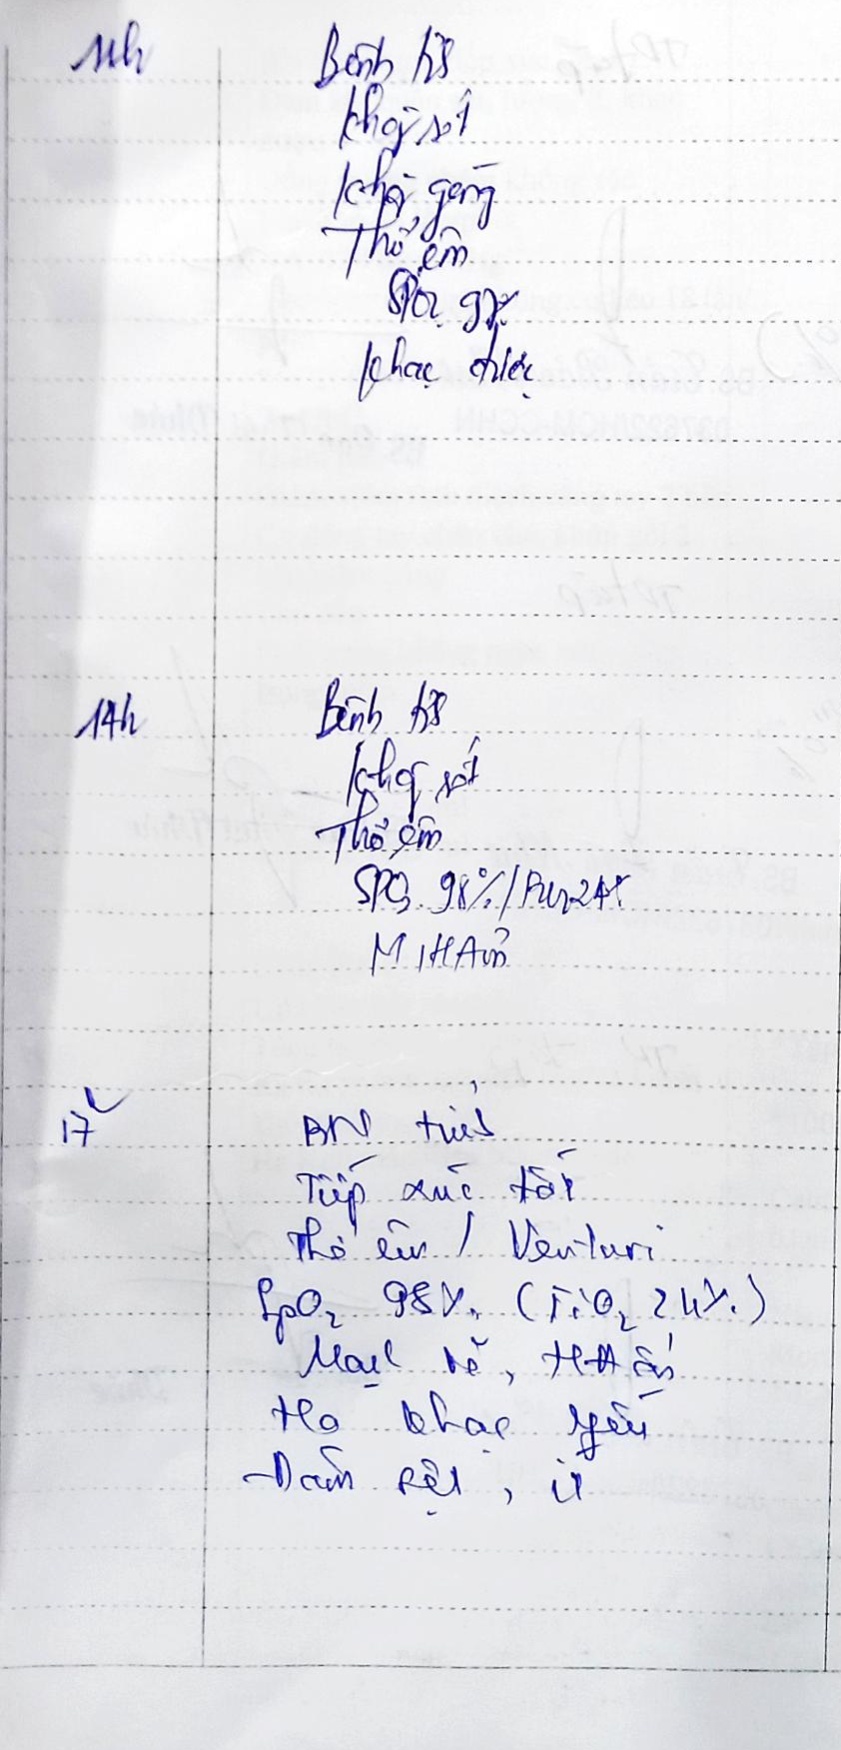 11h
Bệnh tỉnh
Không sốt
Không gắng
Thở êm
SPO2 97%
khạc được
14h
Bệnh tỉnh
Không sốt
Thở êm
SPO2 98% / 24%
M, HA ổn
17h
BN tỉnh
Tiếp xúc tốt
Thở êm / Venturi
SpO2 98% (FiO2 24%)
Mạch rõ, HA ổn
Ho khạc yếu
Đàm sệt, ít